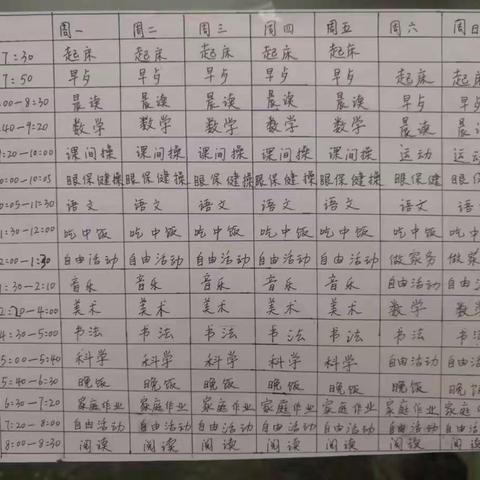 周一 周二 周三 周四 周五 周六 周日
7:30 起床 起床 起床 起床 起床
7:50 早歺 早歺 早歺 早歺 早歺 起床 起床
:00-8:30 晨读 晨读 晨读 晨读 晨读 早歺 早歺
:40-9:20 数学 数学 数学 数学 数学 晨读 晨读
:20-10:00 课间操 课间操 课间操 课间操 课间操 运动 运动
0:00-10:05 眼保健操 眼保健操 眼保健操 眼保健操 眼保健操 眼保健 眼保
0:05-11:30 语文 语文 语文 语文 语文 语文 语文
1:30-12:00 吃中饭 吃中饭 吃中饭 吃中饭 吃中饭 吃中饭 吃中
2:00-1:30 自由活动 自由活动 自由活动 自由活动 自由活动 做家务 做家
1:30-2:10 音乐 音乐 音乐 音乐 音乐 自由活动 自由活
2:20-4:00 美术 美术 美术 美术 美术 数学 数学
4:30-5:00 书法 书法 书法 书法 书法 书法 书法
5:00-5:40 科学 科学 科学 科学 科学 自由活动 自由活
5:40-6:30 晚饭 晚饭 晚饭 晚饭 晚饭 晚饭 晚饭
6:30-7:20 家庭作业 家庭作业 家庭作业 家庭作业 家庭作业 家庭作业 家庭
7:20-8:00 自由活动 自由活动 自由活动 自由活动 自由活动 自由活动 自由活
8:00-8:30 阅读 阅读 阅读 阅读 阅读 阅读 阅读